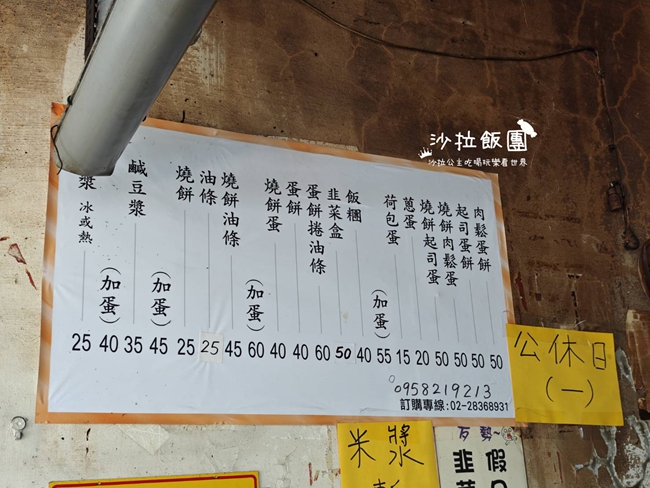 沙拉飯團
沙拉公主吃喝玩樂看世界
肉鬆蛋餅 50
起司蛋餅 50
燒餅肉鬆蛋 50
燒餅起司蛋 50
蔥蛋 20
荷包蛋 15
(加蛋) 55
飯糰 40
韭菜盒 50
蛋餅捲油條 60
蛋餅 40
燒餅蛋 40
(加蛋) 60
燒餅油條 45
油條 25
燒餅 25
(加蛋) 45
鹹豆漿 35
(加蛋) 40
漿 冰或熱 25
0958219213
訂購專線:02-28368931
公休日
(一)
米漿